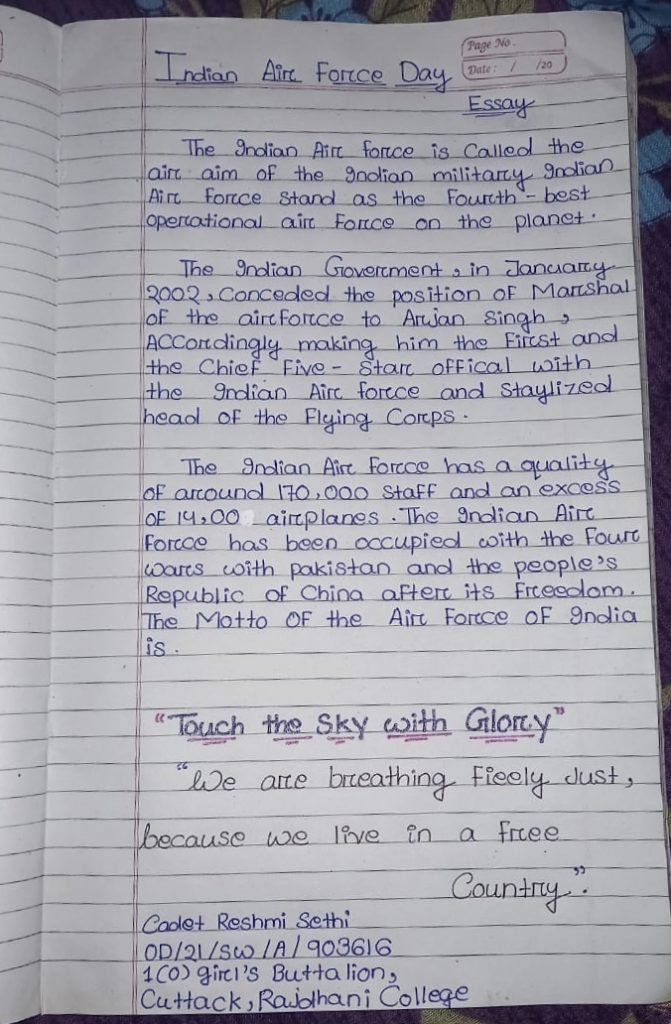 Page No.
Date: / /20
Indian Air Force Day
Essay
The Indian Air force is Called the
air aim of the Indian military Indian
Air force stand as the Fourth - best
operational air Force on the planet.
The Indian Goverment, in January
2002, Conceded the position of Marshal
of the airforce to Arjan Singh,
ACCordingly making him the First and
the Chief Five - Starc offical with
the Indian Air force and Staylized
head of the Flying Corps.
The Indian Air Forcce has a quality
of around 170,000 Staff and an excess
OF 14,00 airplanes. The Indian Air
Forcce has been occupied with the Four
wars with pakistan and the people's
Republic of China after its Freedom.
The Motto OF the Air Force OF India
is.
"Touch the Sky with Glory"
"We are breathing Fieely Just,
because we live in a free
Country".
Cadet Reshmi Sethi
OD/21/SW/A/903616
1(O) girl's Buttalion,
Cuttack, Rajdhani College